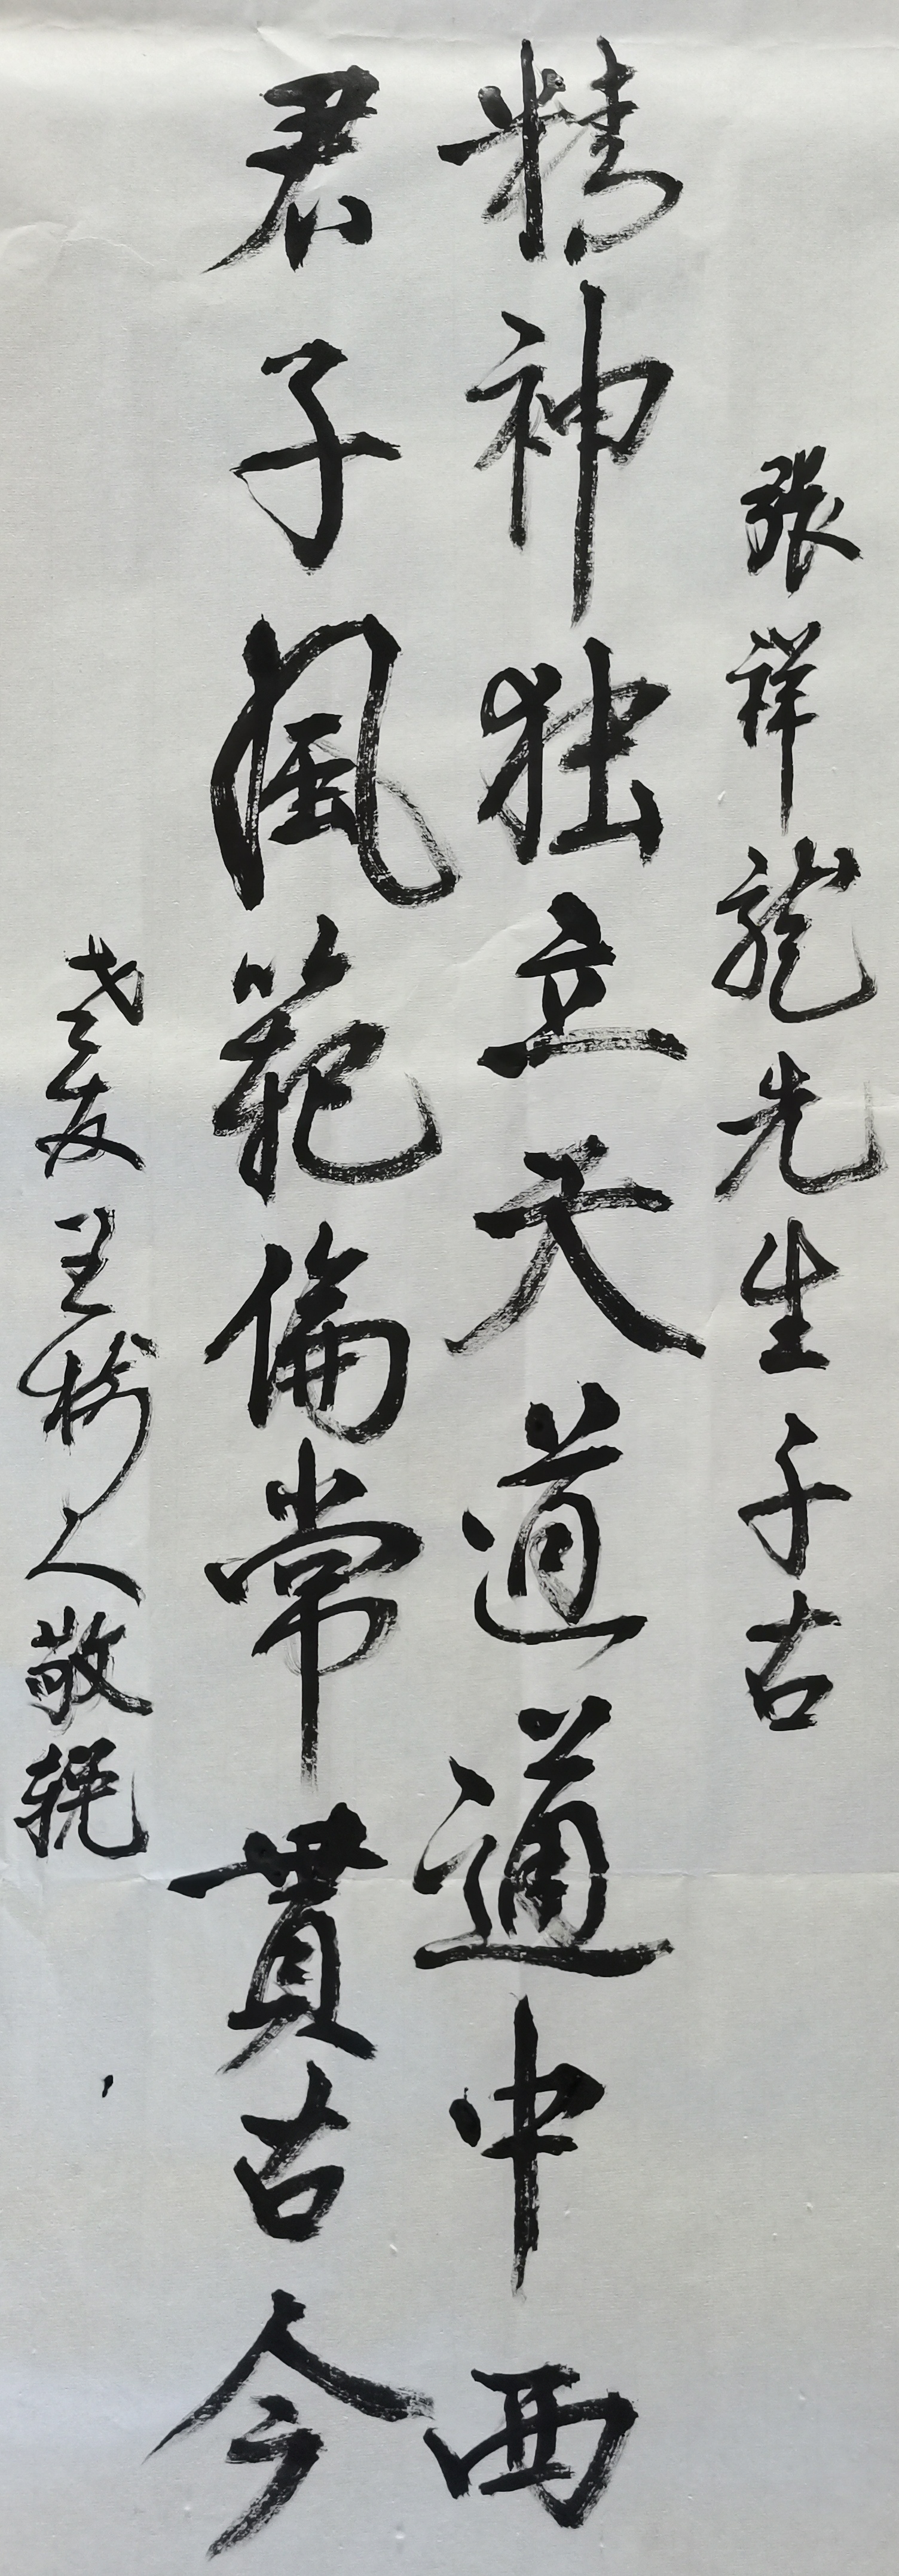 張祥龍先生千古
精神独立天道通中西
君子風範倫常貫古今
老友王樹人敬輓